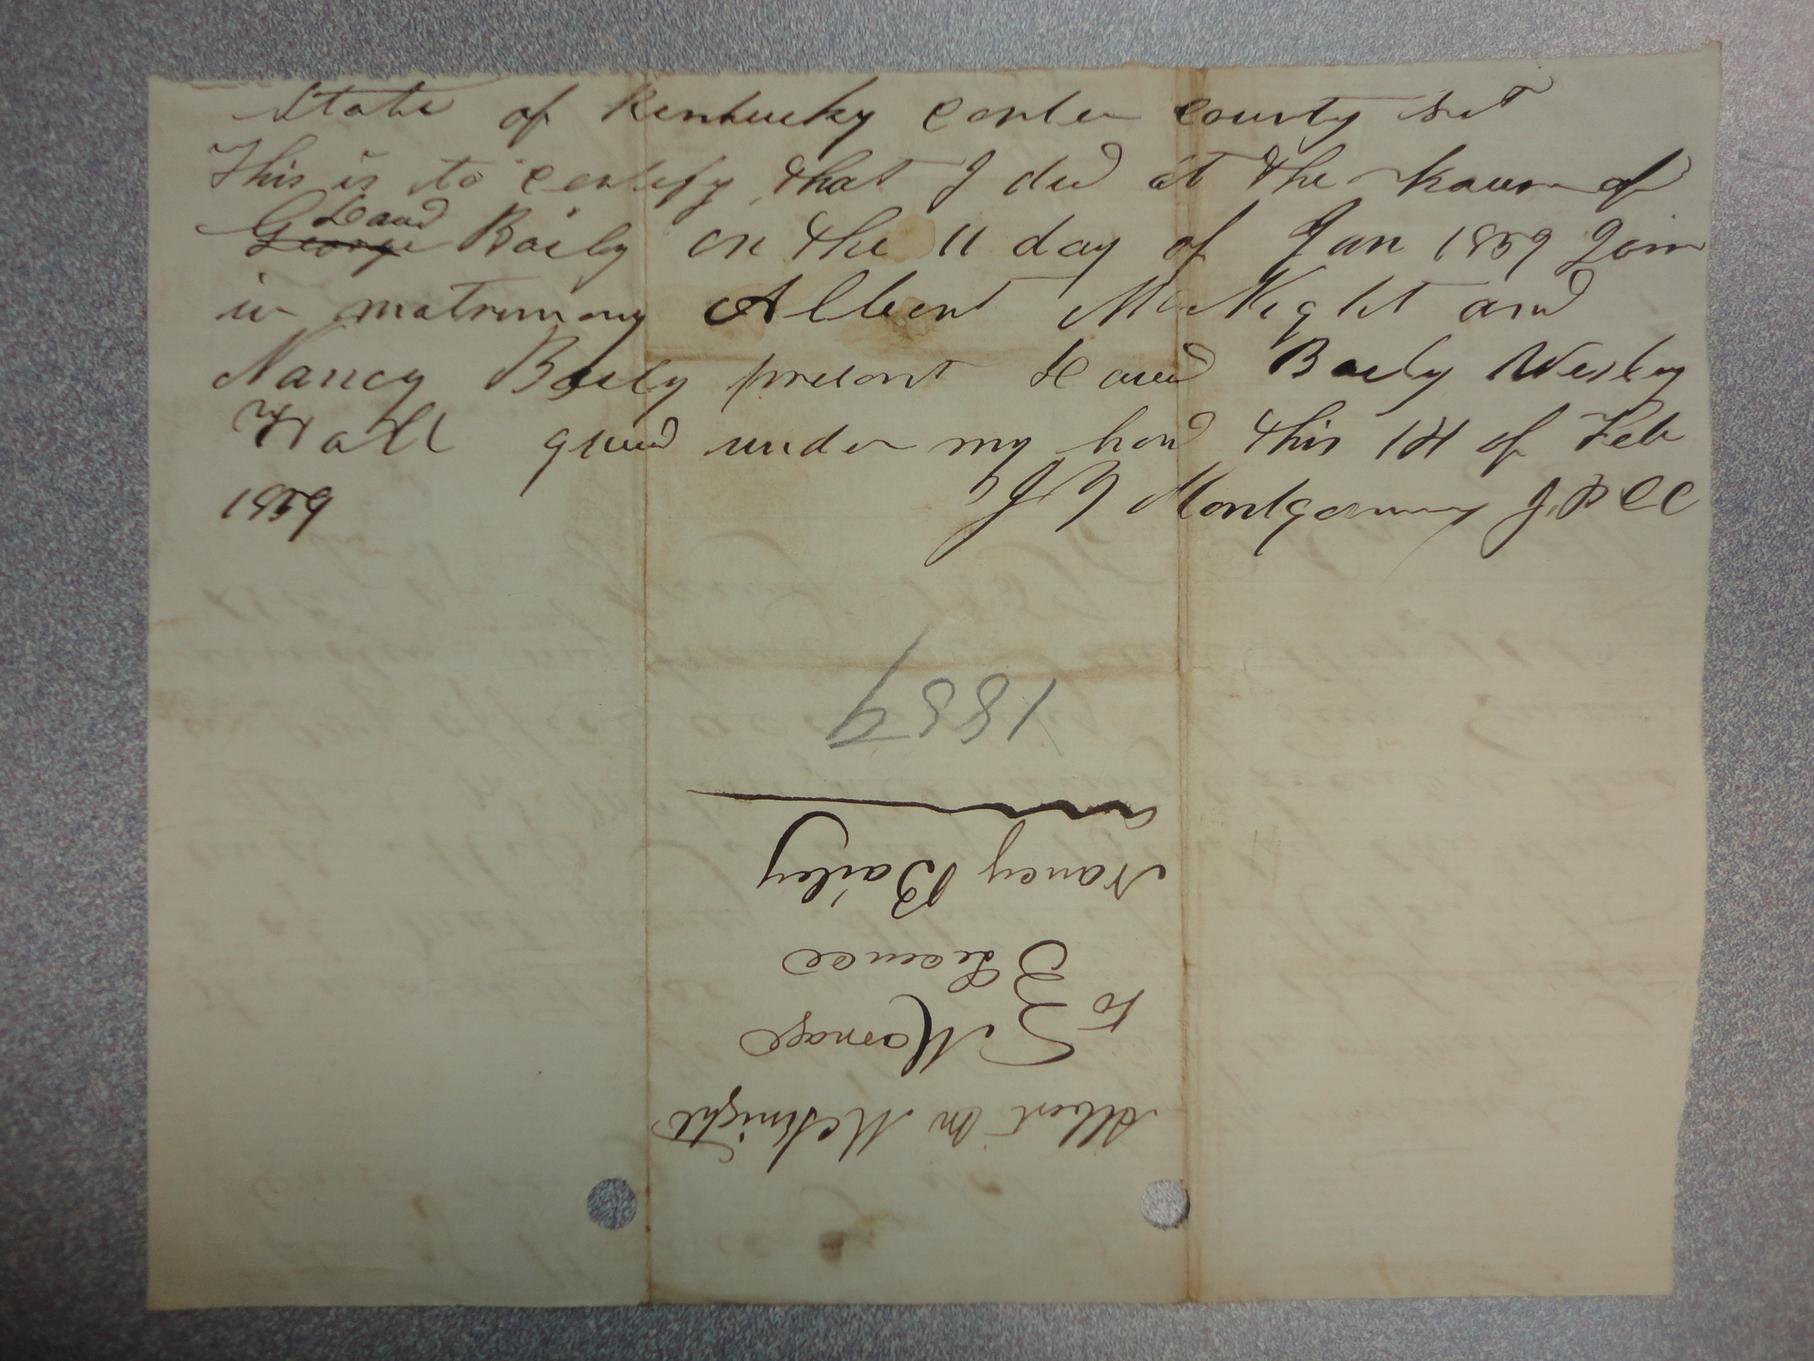 State of Kentucky Carter County Sct
This is to certify that I did at the house of
David
George Baily on the 11 day of Jan 1859 Join
in matrimony Albert McKight and
Nancy Baily present David Baily Wesley
Hall given under my hand this 1st of Feb
1859
Montgomery J.P.C.C
Albert M McKnight
To } Marriage
Licence
Nancy Bailey
1859